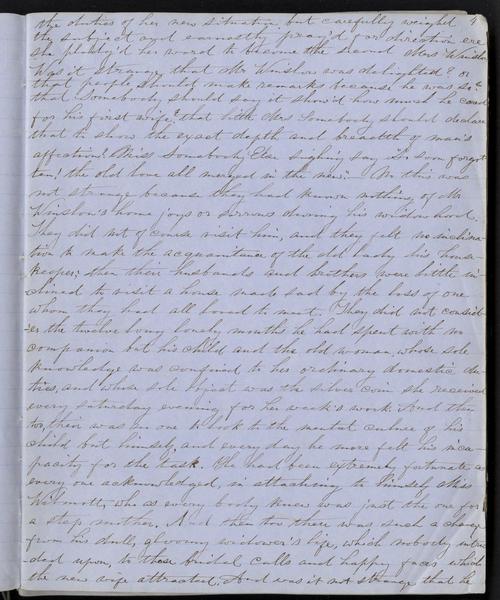 the duties of her new situation but carefully weighed 4
the subject and earnestly pray'd for direction ere
she pledg'd her word to become the second Mrs Winslow
Was it strange that Mr Winslow was delighted? or
that people should make remarks because he was so?
that Somebody should say it show'd how much he cared
for his first wife? that little Mrs Somebody should declare
that to show the exact depth and breadth of man's
affection? Miss Somebody Else sighing say "So soon forgot
ten! the old love all merged in the new." No this was
not strange because they had known nothing of Mr
Winslow's home joys or sorrows during his widowhood.
They did not of course visit him, and they felt no inclina-
tion to make the acquaintance of the old lady his house-
keeper; then their husbands and brothers were little in-
clined to visit a house made sad by the loss of one
whom they had all loved to meet. They did not consid-
er the twelve long lonely months he had spent with no
companion but his child and the old woman, whose sole
knowledge was confined to her ordinary domestic du-
ties, and whose sole object was the silver coin she received
every saturday evening for her week's work. And then
too, there was no one to look to the mental culture of his
child but himself, and every day he more felt his inca-
pacity for the task. He had been extremely fortunate as
every one acknowledged, in attaching to himself Miss
Wilmott, who as every body knew was just the one for
a step mother. And then too there was such a change
from his dull, gloomy widower's life, which nobody intru-
ded upon, to those bridal calls and happy faces which
the new wife attracted. And was it not strange that he